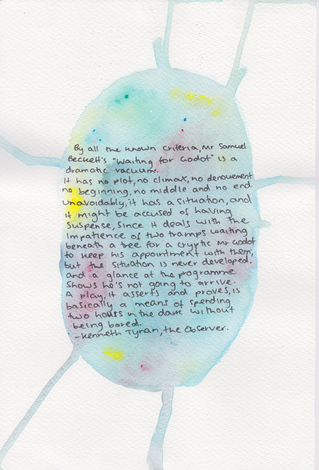 By all the known criteria, Mr Samuel
Beckett's "Waiting for Godot" is a
dramatic vacuum.
It has no plot, no climax, no denouement
no beginning, no middle and no end.
Unavoidably, it has a situation, and
it might be accused of having
suspense, since it deals with the
impatience of two tramps waiting
beneath a tree for a cryptic Mr Godot
to keep his appointment with them,
but the situation is never developed,
and a glance at the programme
shows he's not going to arrive.
A play, it asserts and proves, is
basically a means of spending
two hours in the dark without
being bored.
- Kenneth Tynan, the Observer.